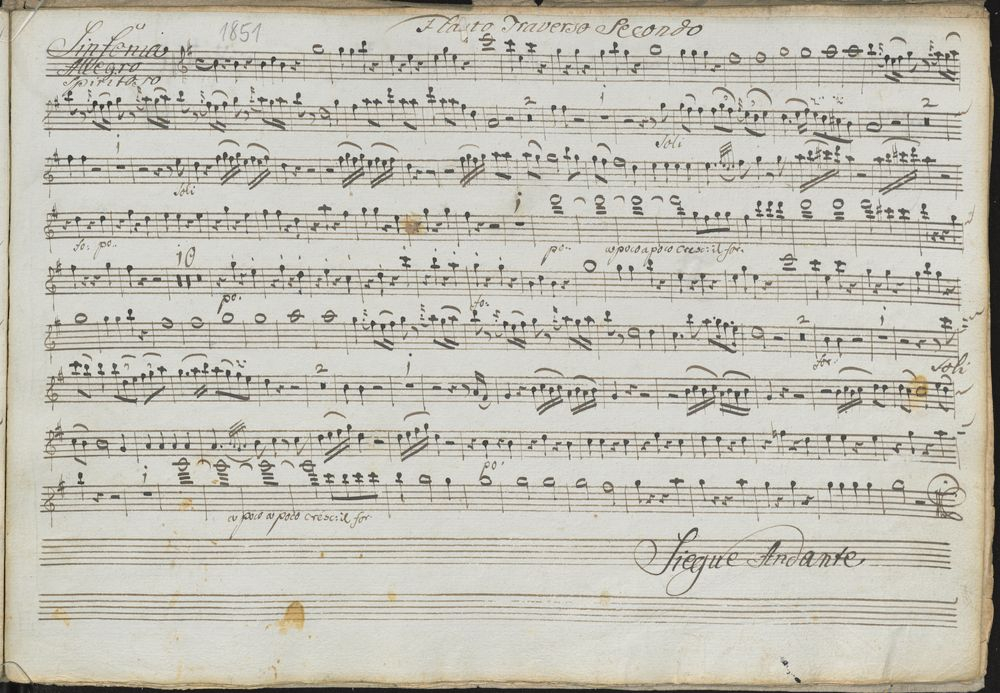 Flauto Traverso Secondo
1851
Sinfonia
Allegro
Spiritoso
2 1 2
Soli
1
Soli
1
fo: po:. po:. a poco a poco cresc: il for:
10
po: fo:
2 1
for: Soli
2 1
po:
1
a poco a poco cresc: il for:
Siegue Andante